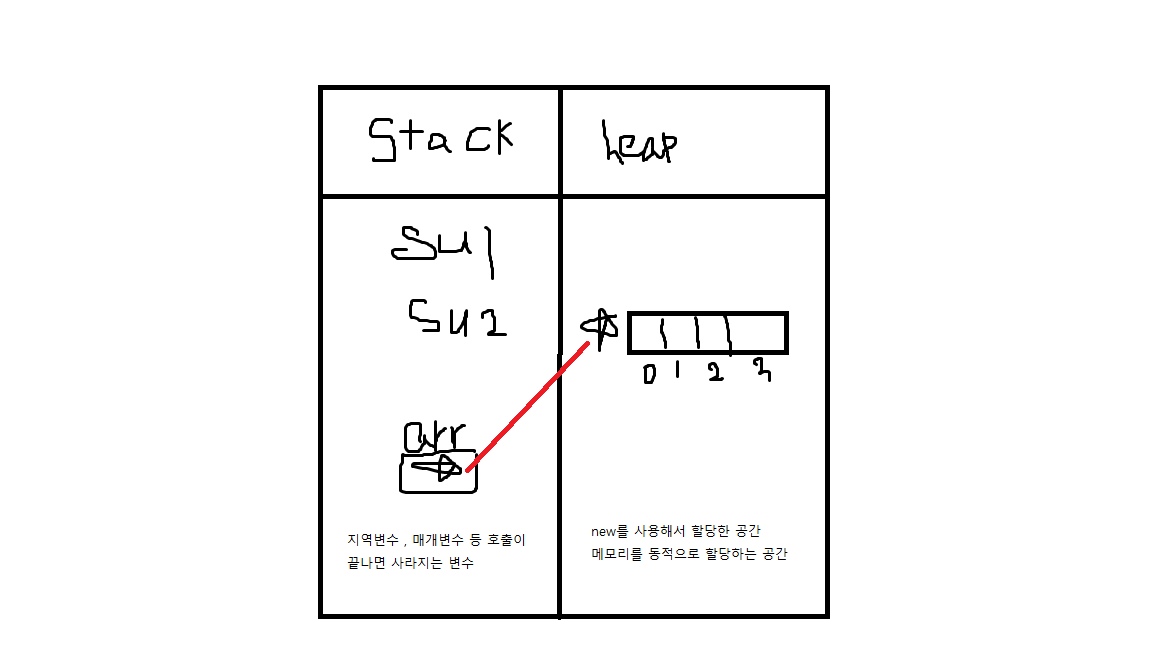 Stack
heap
su1
su2
0 1 2 3
arr
지역변수 , 매개변수 등 호출이
끝나면 사라지는 변수
new를 사용해서 할당한 공간
메모리를 동적으로 할당하는 공간